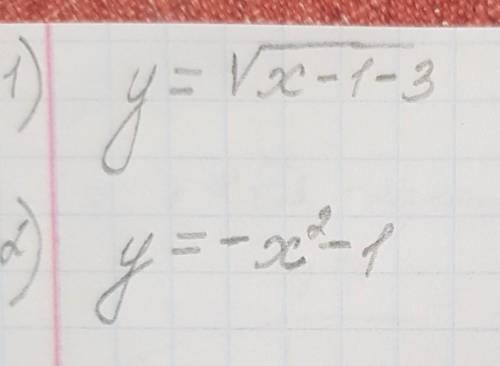 1) y = √(x - 1 - 3)
2) y = -x² - 1